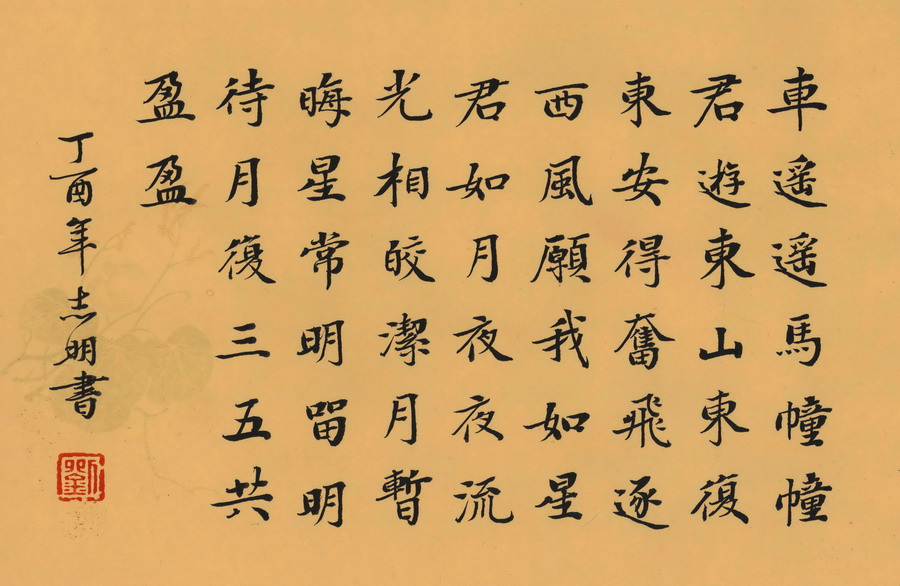 車遥遥馬幢幢
君遊東山東復
東安得奮飛逐
西風願我如星
君如月夜夜流
光相皎潔月暫
晦星常明留明
待月復三五共
盈盈
丁酉年志明書
劉